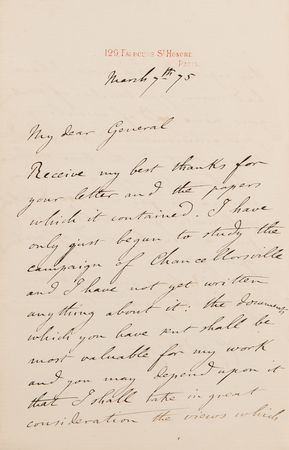 129, Faubourg St Honoré
Paris.
March 7th 75
My dear General
Receive my best thanks for
your letter and the papers
which it contained. I have
only just begun to study the
campaign of Chancellorsville
and I have not yet written
anything about it: the documents
which you have sent shall be
most valuable for my work
and you may depend upon it
that I shall take in great
consideration the views which